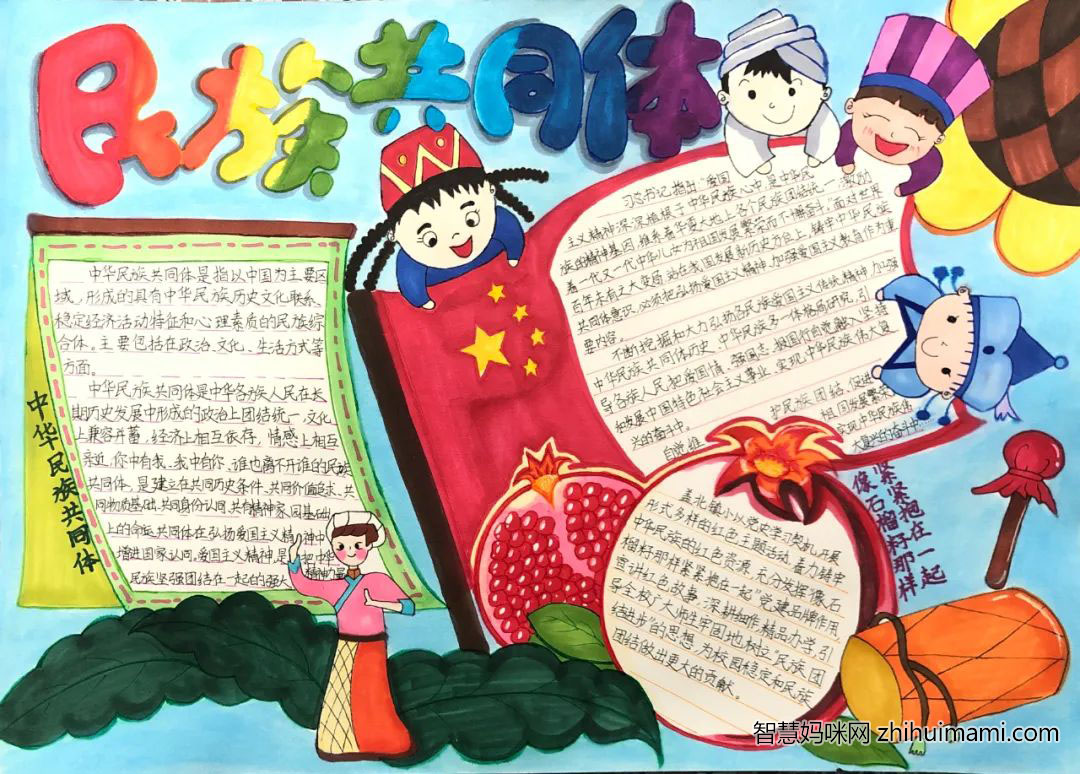 民族共同体
中华民族共同体是指以中国为主要区
域，形成的具有中华民族历史文化联系、
稳定经济活动特征和心理素质的民族综
合体。主要包括在政治、文化、生活方式等
方面。
中华民族共同体是中华各族人民在长
期历史发展中形成的政治上团结统一，文化
上兼容并蓄，经济上相互依存，情感上相互
亲近，你中有我、我中有你、谁也离不开谁的民族
共同体、是建立在共同历史条件、共同价值追求、共
同物质基础、共同身份认同、共有精神家园基础
上的命运共同体在弘扬爱国主义精神中
增进国家认同。爱国主义精神是把中华
民族坚强团结在一起的强大精神力量
中华民族共同体
习总书记指出“爱国
主义精神深深植根于中华民族心中，是中华民
族的精神基因，维系着华夏大地上各个民族团结统一，激励
着一代又一代中华儿女为祖国发展繁荣而不懈奋斗。”面对世界
百年未有之大变局，站在我国发展新历史方位上，铸牢中华民族
共同体意识，必须把弘扬爱国主义精神、加强爱国主义教育作为重
要内容。
不断挖掘和大力弘扬各民族爱国主义传统精神，加强
中华民族共同体历史、中华民族多一体格局研究，引
导各族人民把爱国情、强国志、报国行自觉融入坚持
和发展中国特色社会主义事业、实现中华民族伟大复
兴的奋斗中。
自觉维
护民族团结，促进
祖国发展繁荣
实现中华民族伟
大复兴的奋斗中
像石榴籽那样
紧紧抱在一起
盖北镇小以党史学习契机，开展
形式多样的红色主题活动，奋力铸牢
中华民族的红色资源，充分发挥像石
榴籽那样紧紧抱在一起“党建品牌作用，
宣讲红色故事，深耕细作精品办学，引
导全校广大师生牢固地树立“民族团
结进步”的思想，为校园稳定和民族
团结做出更大的贡献。
智慧妈咪网 zhihuimami.com